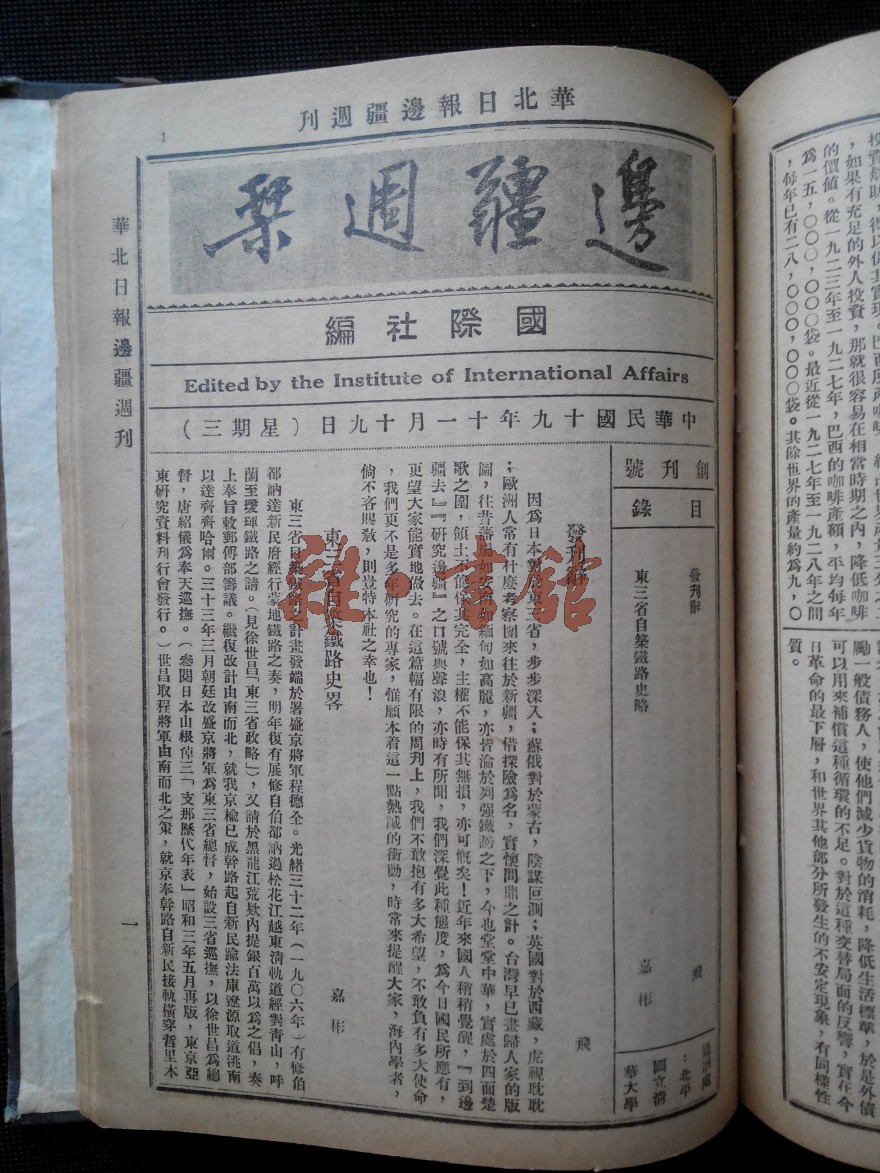 華北日報邊疆週刊
1
邊疆週栞
國際社編
Edited by the Institute of International Affairs
中華民國十九年十一月十九日(星期三)
創刊號
目錄
發刊辭
飛
東三省自築鐵路史略
嘉彬
通訊處
:北平
國立清
華大學
發刊辭
飛
因爲日本對於東三省,步步深入;蘇俄對於蒙古,陰謀叵測;英國對於西藏,虎視耽耽
;歐洲人常有什麽考察團來往於新疆,借探險爲名,實懷問鼎之計。台灣早已畫歸人家的版
圖,往昔藩屬如安南如緬甸如高麗,亦皆淪於列强鐵蹄之下,今也堂堂中華,實處於四面楚
歌之圍,領土不能保其完全,主權不能保其無損,亦可慨矣!近年來國人稍稍覺醒,『到邊
疆去』『研究邊疆』之口號與聲浪,亦時有所聞,我們深覺此種態度,爲今日國民所應有,
更望大家能實地做去。在這篇幅有限的周刊上,我們不敢抱有多大希望,不敢負有多大使命
,我們更不是多年研究的專家,惟願本着這一點熱誠的衝動,時常來提醒大家,海內學者,
倘不吝賜敎,則豈特本社之幸也!
東三省自築鐵路史畧
嘉彬
東三省自築鐵路之計畫發端於署盛京將軍程德全。光緒三十二年(一九〇六年)有修伯
都訥達新民府經行蒙地鐵路之奏,明年復有展修自伯都訥過松花江越東淸軌道經對靑山,呼
蘭至璦琿鐵路之請。(見徐世昌「東三省政略」),又請於黑龍江荒欵內提銀百萬以爲之倡,奏
上奉旨敕郵傳部籌議。繼復改計由南而北,就我京楡已成幹路起自新民踰法庫遼源取道洮南
以達齊齊哈爾。三十三年三月朝廷改盛京將軍爲東三省總督,始設三省巡撫,以徐世昌爲總
督,唐紹儀爲奉天巡撫。(參閱日本山根倬三「支那歷代年表」昭和三年五月再版,東京亞
東研究資料刊行會發行。)世昌取程將軍由南而北之策,就京奉幹路自新民接軌橫穿哲里木
華北日報邊疆週刊
一
,如果有充足的外人投資,那就很容易在相當時期之內,降低咖啡
的價値。從一九二三年至一九二七年,巴西的咖啡產額,平均每年
爲一五,〇〇〇,〇〇〇袋。最近從一九二七年至一九二八年之間
,每年已有二八,〇〇〇,〇〇〇袋。其餘世界的產量約爲九,〇
勵一般債務人,使他們減少貨物的消耗,降低生活標準,於是外債
可以用來補償這種循環的不足。對於這種交替局面的反響,實在今
日革命的最下層,和世界其他部分所發生的不安定現象,有同樣性
質。
雜·書館